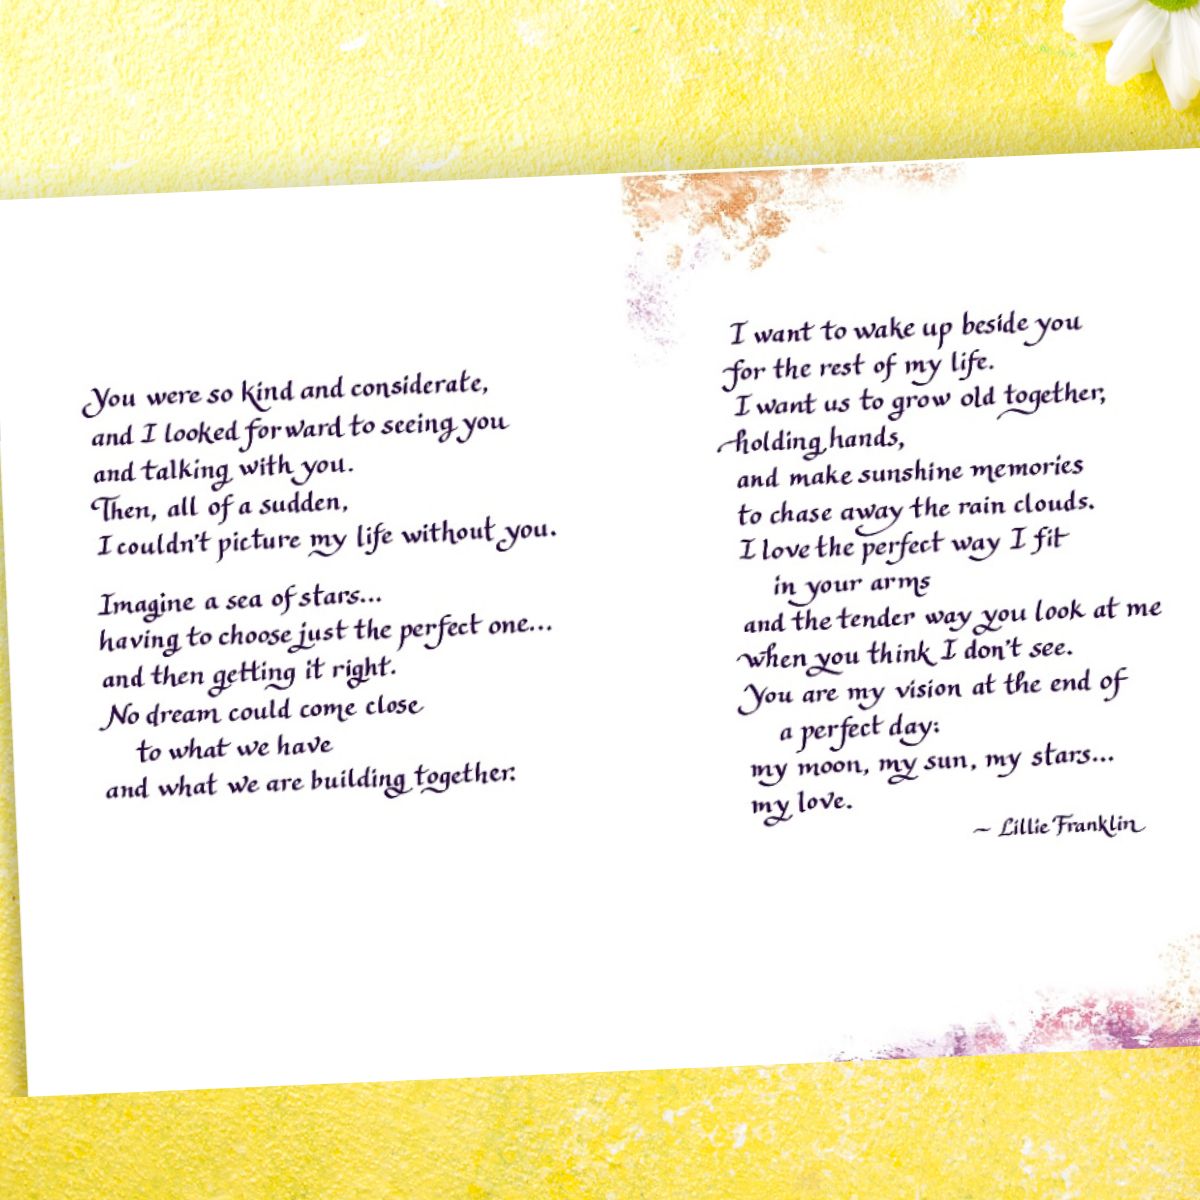 You were so kind and considerate,
and I looked forward to seeing you
and talking with you.
Then, all of a sudden,
I couldn't picture my life without you.
Imagine a sea of stars...
having to choose just the perfect one...
and then getting it right.
No dream could come close
to what we have
and what we are building together.
I want to wake up beside you
for the rest of my life.
I want us to grow old together,
holding hands,
and make sunshine memories
to chase away the rain clouds.
I love the perfect way I fit
in your arms
and the tender way you look at me
when you think I don't see.
You are my vision at the end of
a perfect day:
my moon, my sun, my stars...
my love.
~ Lillie Franklin